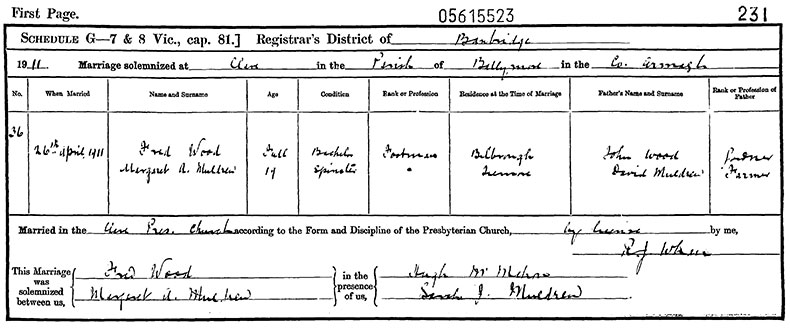 First Page. 05615523 231
SCHEDULE G—7 & 8 Vic., cap. 81.] Registrar's District of Banbridge
1911. Marriage solemnized at Clare in the Parish of Ballymore in the Co. Armagh
No. When Married Name and Surname Age Condition Rank or Profession Residence at the Time of Marriage Father's Name and Surname Rank or Profession of Father
36 26th April 1911 Fred Wood Full Bachelor Footman John Wood
Margaret A. Muldrew 19 Spinster David Muldrew Farmer
Married in the Clare Pres. Church according to the Form and Discipline of the Presbyterian Church, by license by me,
This Marriage was solemnized between us, Fred Wood in the presence of us, Hugh
Margaret A. Muldrew Sarah J. Muldrew